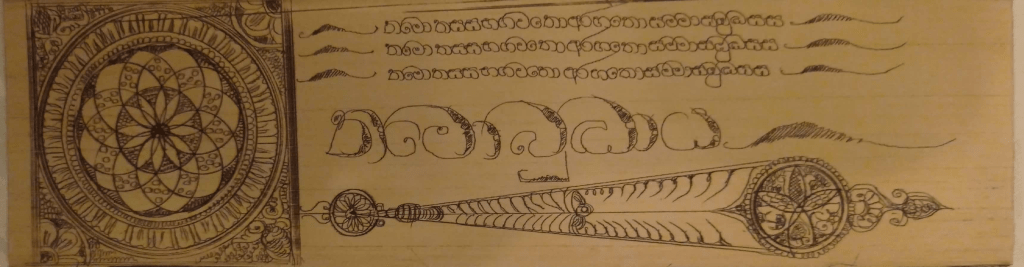 නමො තස්ස භගවතො අරහතො සම්මාසම්බුද්ධස්ස
නමො තස්ස භගවතො අරහතො සම්මාසම්බුද්ධස්ස
නමො තස්ස භගවතො අරහතො සම්මාසම්බුද්ධස්ස
නමො බුද්ධාය